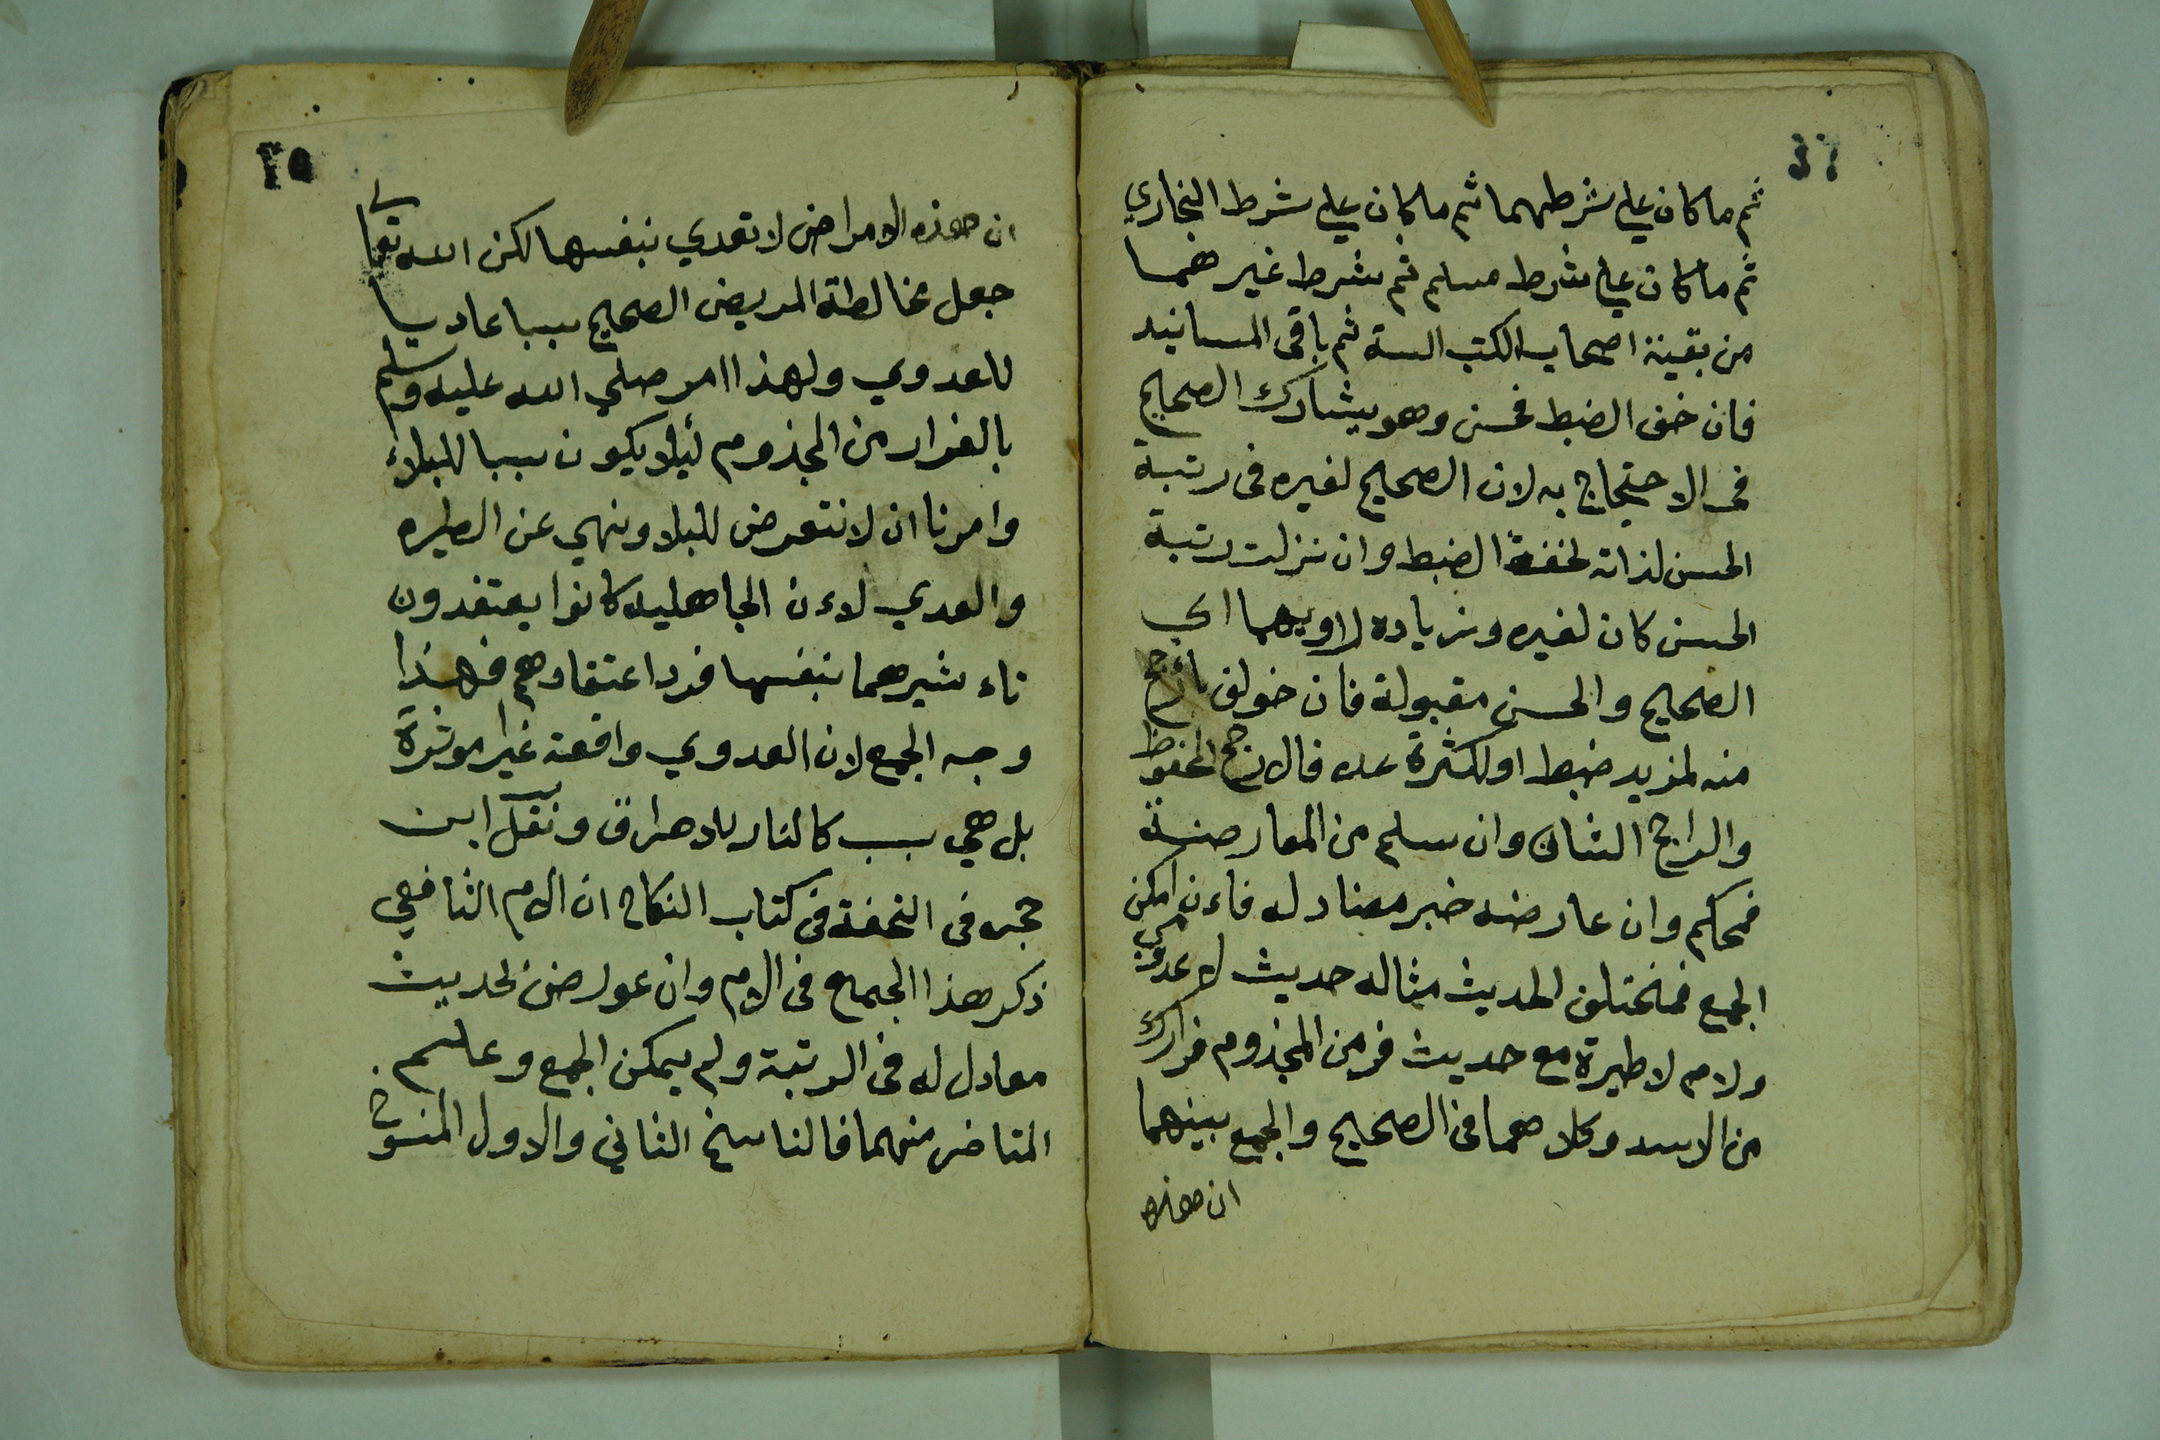 ثم ما كان علي شرطهما ثم ما كان علي شرط البخاري
ثم ما كان علي شرط مسلم ثم شرط غيرهما
من بقية اصحاب الكتب الستة ثم باقي المسانيد
فان خف الضبط فحسن وهو يشارك الصحيح
في الاحتجاج به لان الصحيح لغيره في رتبة
الحسن لذاته لخفة الضبط وان نزلت رتبة
الحسن كان لغيره وزياده راويهما اي
الصحيح والحسن مقبولة فان خولف بأرجح
منه لمزيد ضبط او لكثرة عدد فالارجح المحفوظ
والراجح الشاذ وان سلم من المعارضة
فمحكم وان عارضه خبر معادل له فاءن امكن
الجمع فمختلف الحديث مثاله حديث لا عدوي
ولا طيرة مع حديث فر من المجذوم فرارك
من الاسد وكلاهما في الصحيح والجمع بينهما
ان هذه
٢٥
ان هذه الامراض لا تعدي بنفسها لكن الله تعالي
جعل مخالطة المريض الصحيح سببا عاديا
للعدوي ولهذا امر صلي الله عليه وسلم
بالفرار من المجذوم ليلا يكون سببا للبلاء
وامرنا ان لا نتعرض للبلا ونهي عن الطيره
والعدي لاءن الجاهليه كانوا يعتقدون
تاءثيرهما بنفسها فرد اعتقادهم فهذا
وجه الجمع لان العدوي واقعة غير موثرة
بل هي سبب كالنار للاحراق ونقل ابن
حجر في التحفة في كتاب النكاح ان الامام الشافعي
ذكر هذا الجمع في الام وان عورض الحديث
معادل له في الرتبة ولم يمكن الجمع وعلم
المتاخر منهما فالناسخ الثاني والاول المنسوخ